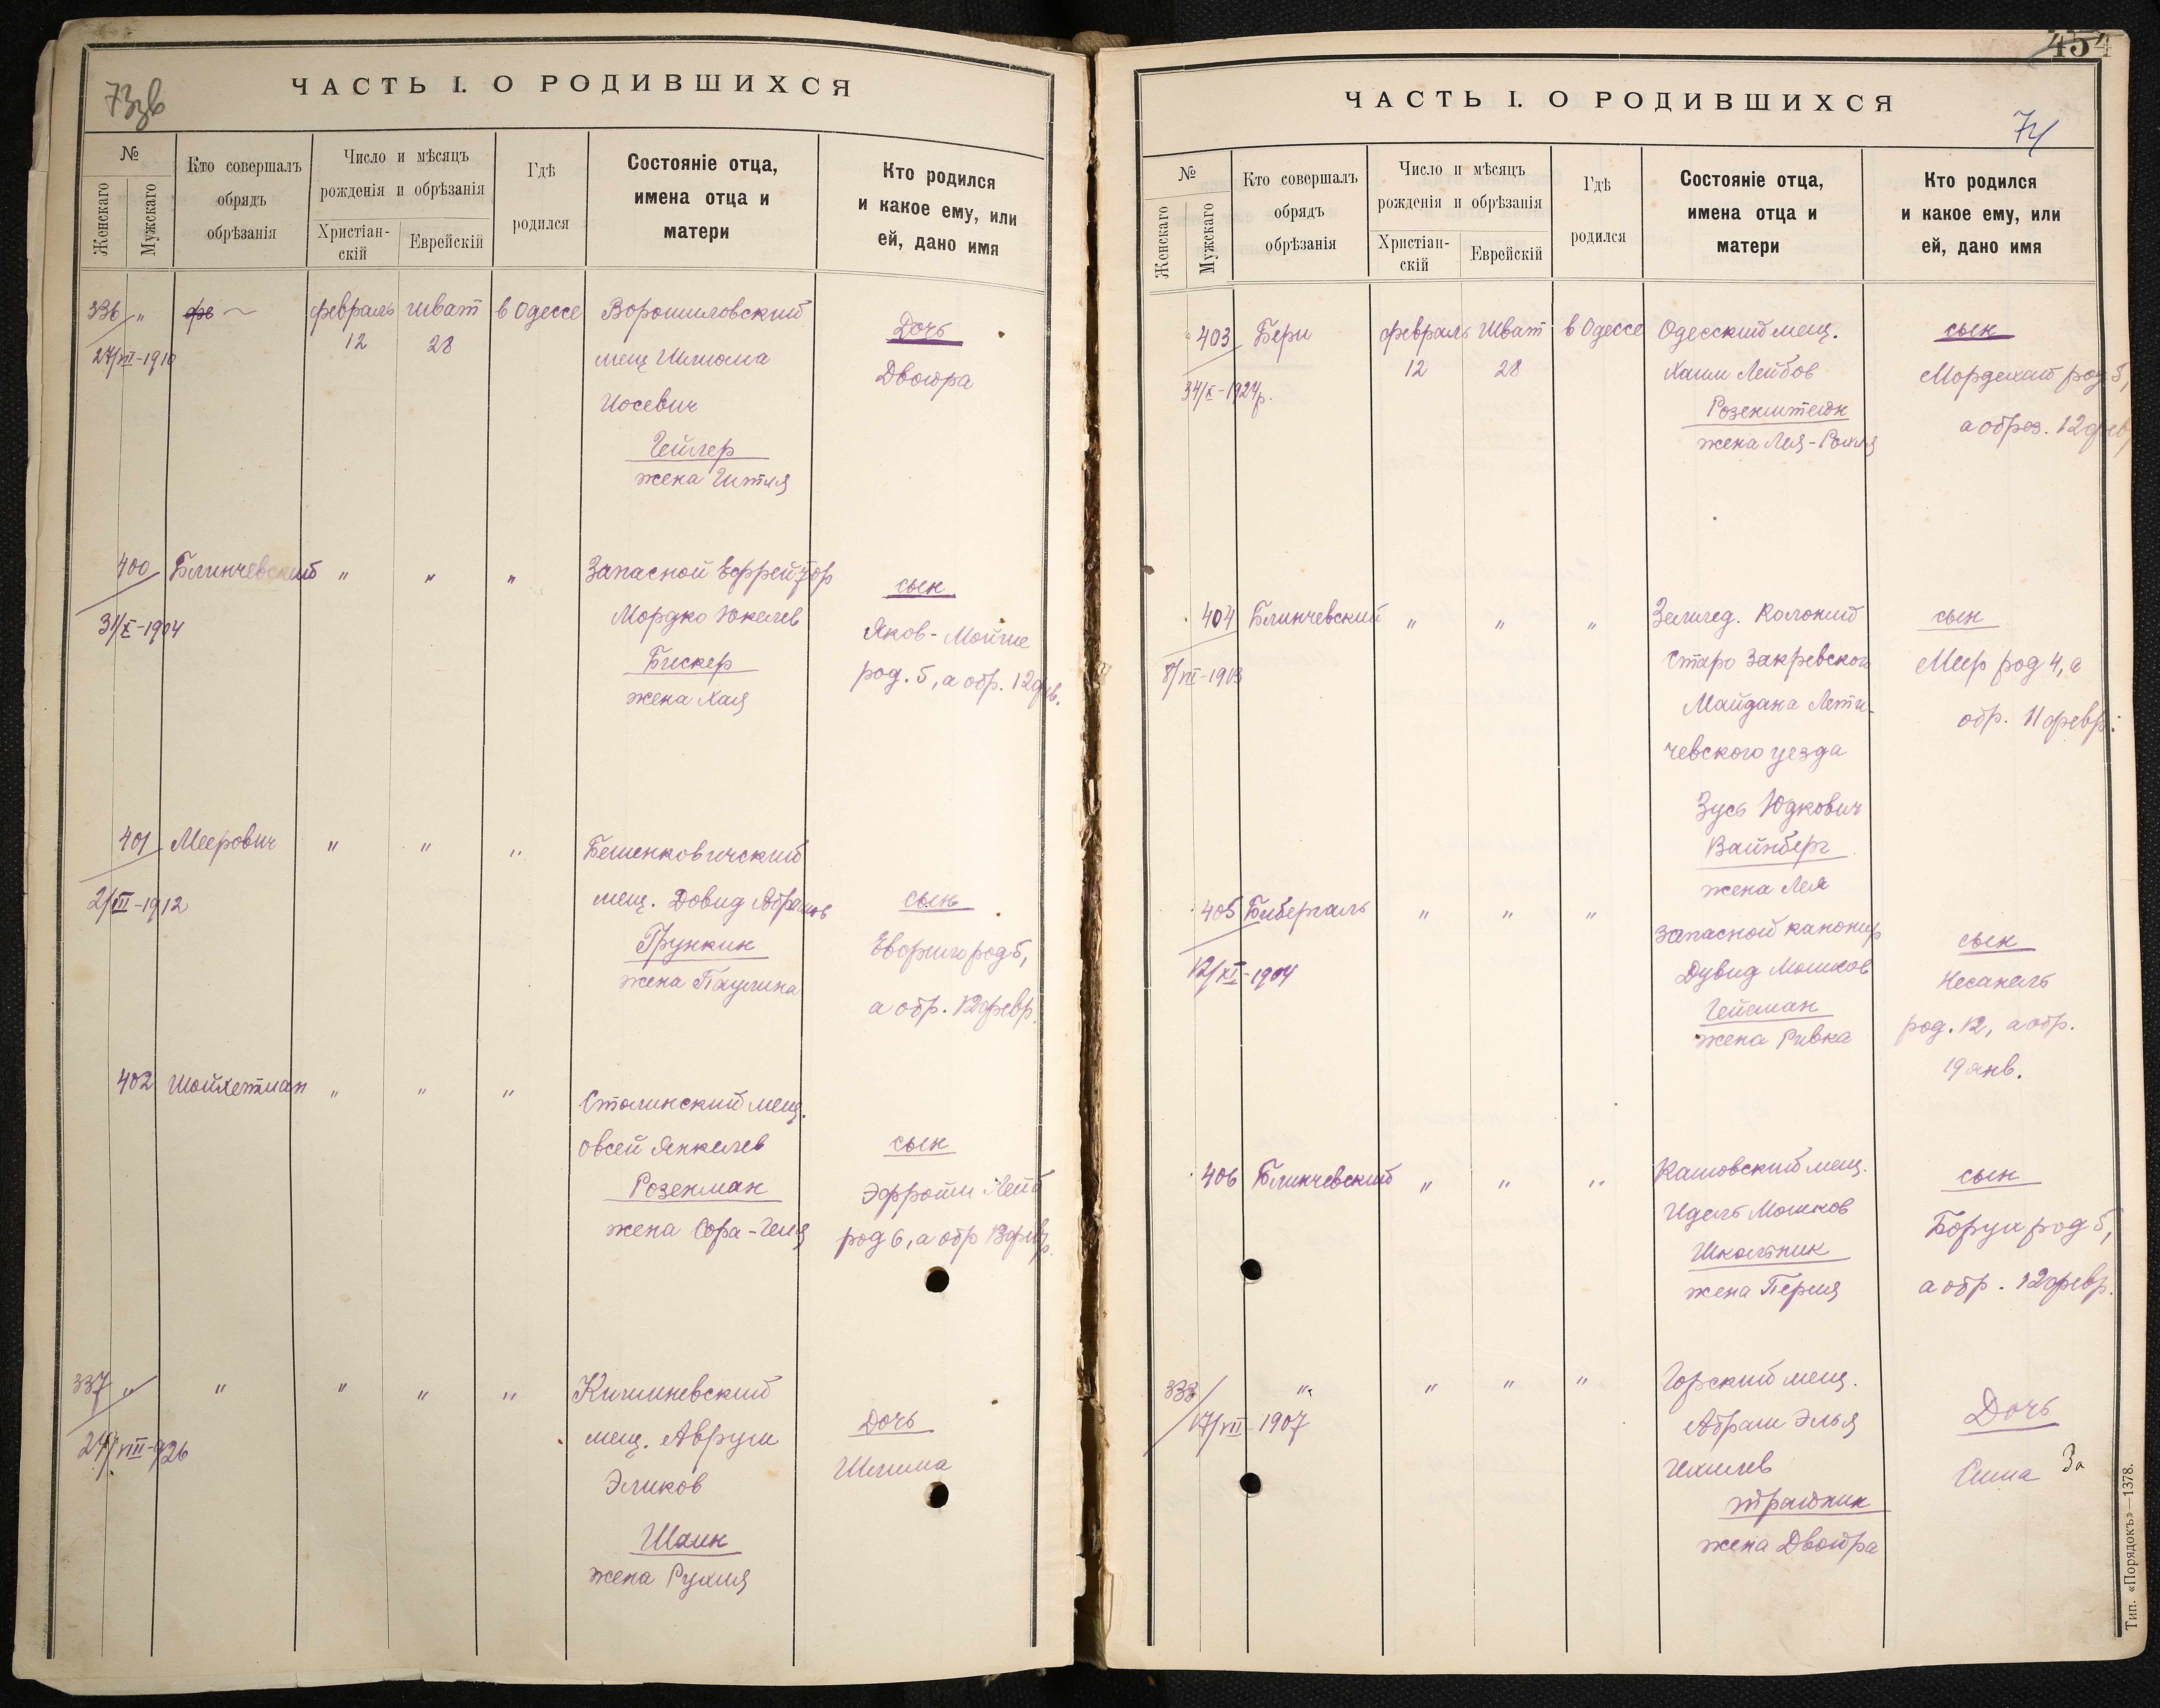 73зв
ЧАСТЬ I. О РОДИВШИХСЯ
№
Женскаго
Мужскаго
Кто совершалъ
обрядъ
обрѣзанія
Число и мѣсяцъ
рожденія и обрѣзанія
Христіан-
скій
Еврейскій
Гдѣ
родился
Состояніе отца,
имена отца и
матери
Кто родился
и какое ему, или
ей, дано имя
336 " февраль 12 шват 28 в Одессе
27/VII-1910
Ворошиловский
мещ Шлиома
Иосевич
Гейлер
жена Гитля
Дочь
Двойра
400 Блинчевский " " "
31/X-1904
Запасной Ефрейтор
Мордко Юкелев
Бискер
жена Хая
сын
Яков-Мойше
род. 5, а обр. 12 фев.
401 Меерович " " "
2/III-1912
Бешенковичский
мещ. Довид Абрамов
Грункин
жена Паулина
сын
род 5,
а обр. 12 февр.
402 Шойхетман " " "
Столинский мещ.
Овсей Янкелев
Розенман
жена Сора-Геня
сын
Эфроим Лейб
род 6, а обр 13 февр.
337 " " " " "
27/VIII-926
Кишиневский
мещ. Аврум
Эликов
Шаин
жена Рухля
Дочь
Шлима
454
ЧАСТЬ I. О РОДИВШИХСЯ
74
№
Женскаго
Мужскаго
Кто совершалъ
обрядъ
обрѣзанія
Число и мѣсяцъ
рожденія и обрѣзанія
Христіан-
скій
Еврейскій
Гдѣ
родился
Состояніе отца,
имена отца и
матери
Кто родился
и какое ему, или
ей, дано имя
403 Бери февраль 12 Шват 28 в Одессе
31/X-1924р.
Одесский мещ.
Хаим Лейбов
Розенштейн
жена Лея-Рохля
сын
Мордехай род 5,
а обрез. 12 фев
404 Блинчевский " " "
8/VII-1913
Землед. Колоний
Старо Закревского
Майдана Лети-
чевского уезда
Зусь Юдкович
Вайнберг
жена Лея
сын
Меер род 4, а
обр. 11 февр.
405 Бибергаль " " "
12/XI-1904
Запасной канонир
Дувид Мошков
Гейсман
жена Ривка
сын
Несанель
род. 12, а обр.
19 янв.
406 Блинчевский " " "
Кашовский мещ.
Идель Мошков
Школьник
жена Перля
сын
Борух род 5,
а обр. 12 февр.
338 " " " "
17/VII-1907
Горский мещ.
Абрам Элья
Ихилев
Трайник
жена Двойра
Дочь
Сима За
Тип. «Порядокъ»—1378.